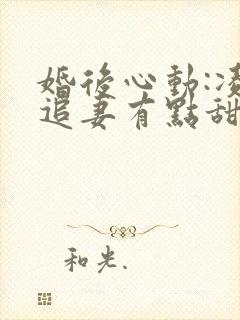 婚後心動:凌
追妻有點甜
和光.